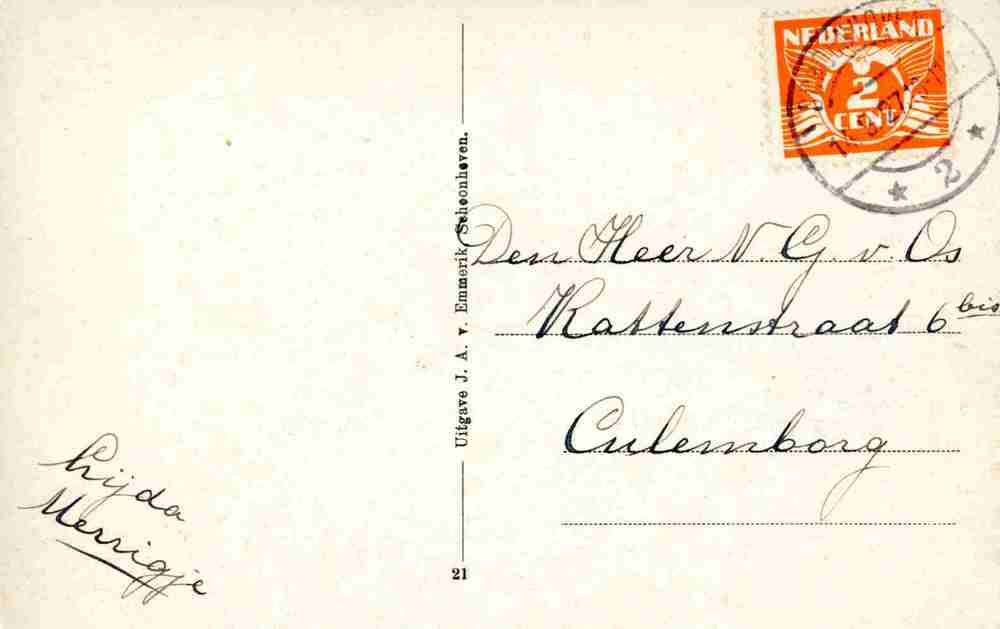 NEDERLAND
2
CENT
2
Uitgave J. A. v. Emmerik, Schoonhoven.
Den Heer N. G. v. Os
Kattenstraat 6 bis
Culemborg
Lijda
Merrigje
21